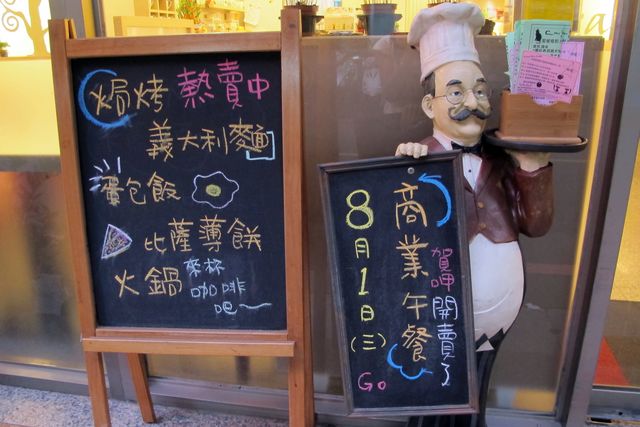 焗烤 熱賣中
義大利麵
蛋包飯
比薩薄餅
火鍋
來杯
咖啡
吧
商業午餐
賀呷開賣了
8月1日(三)
Go